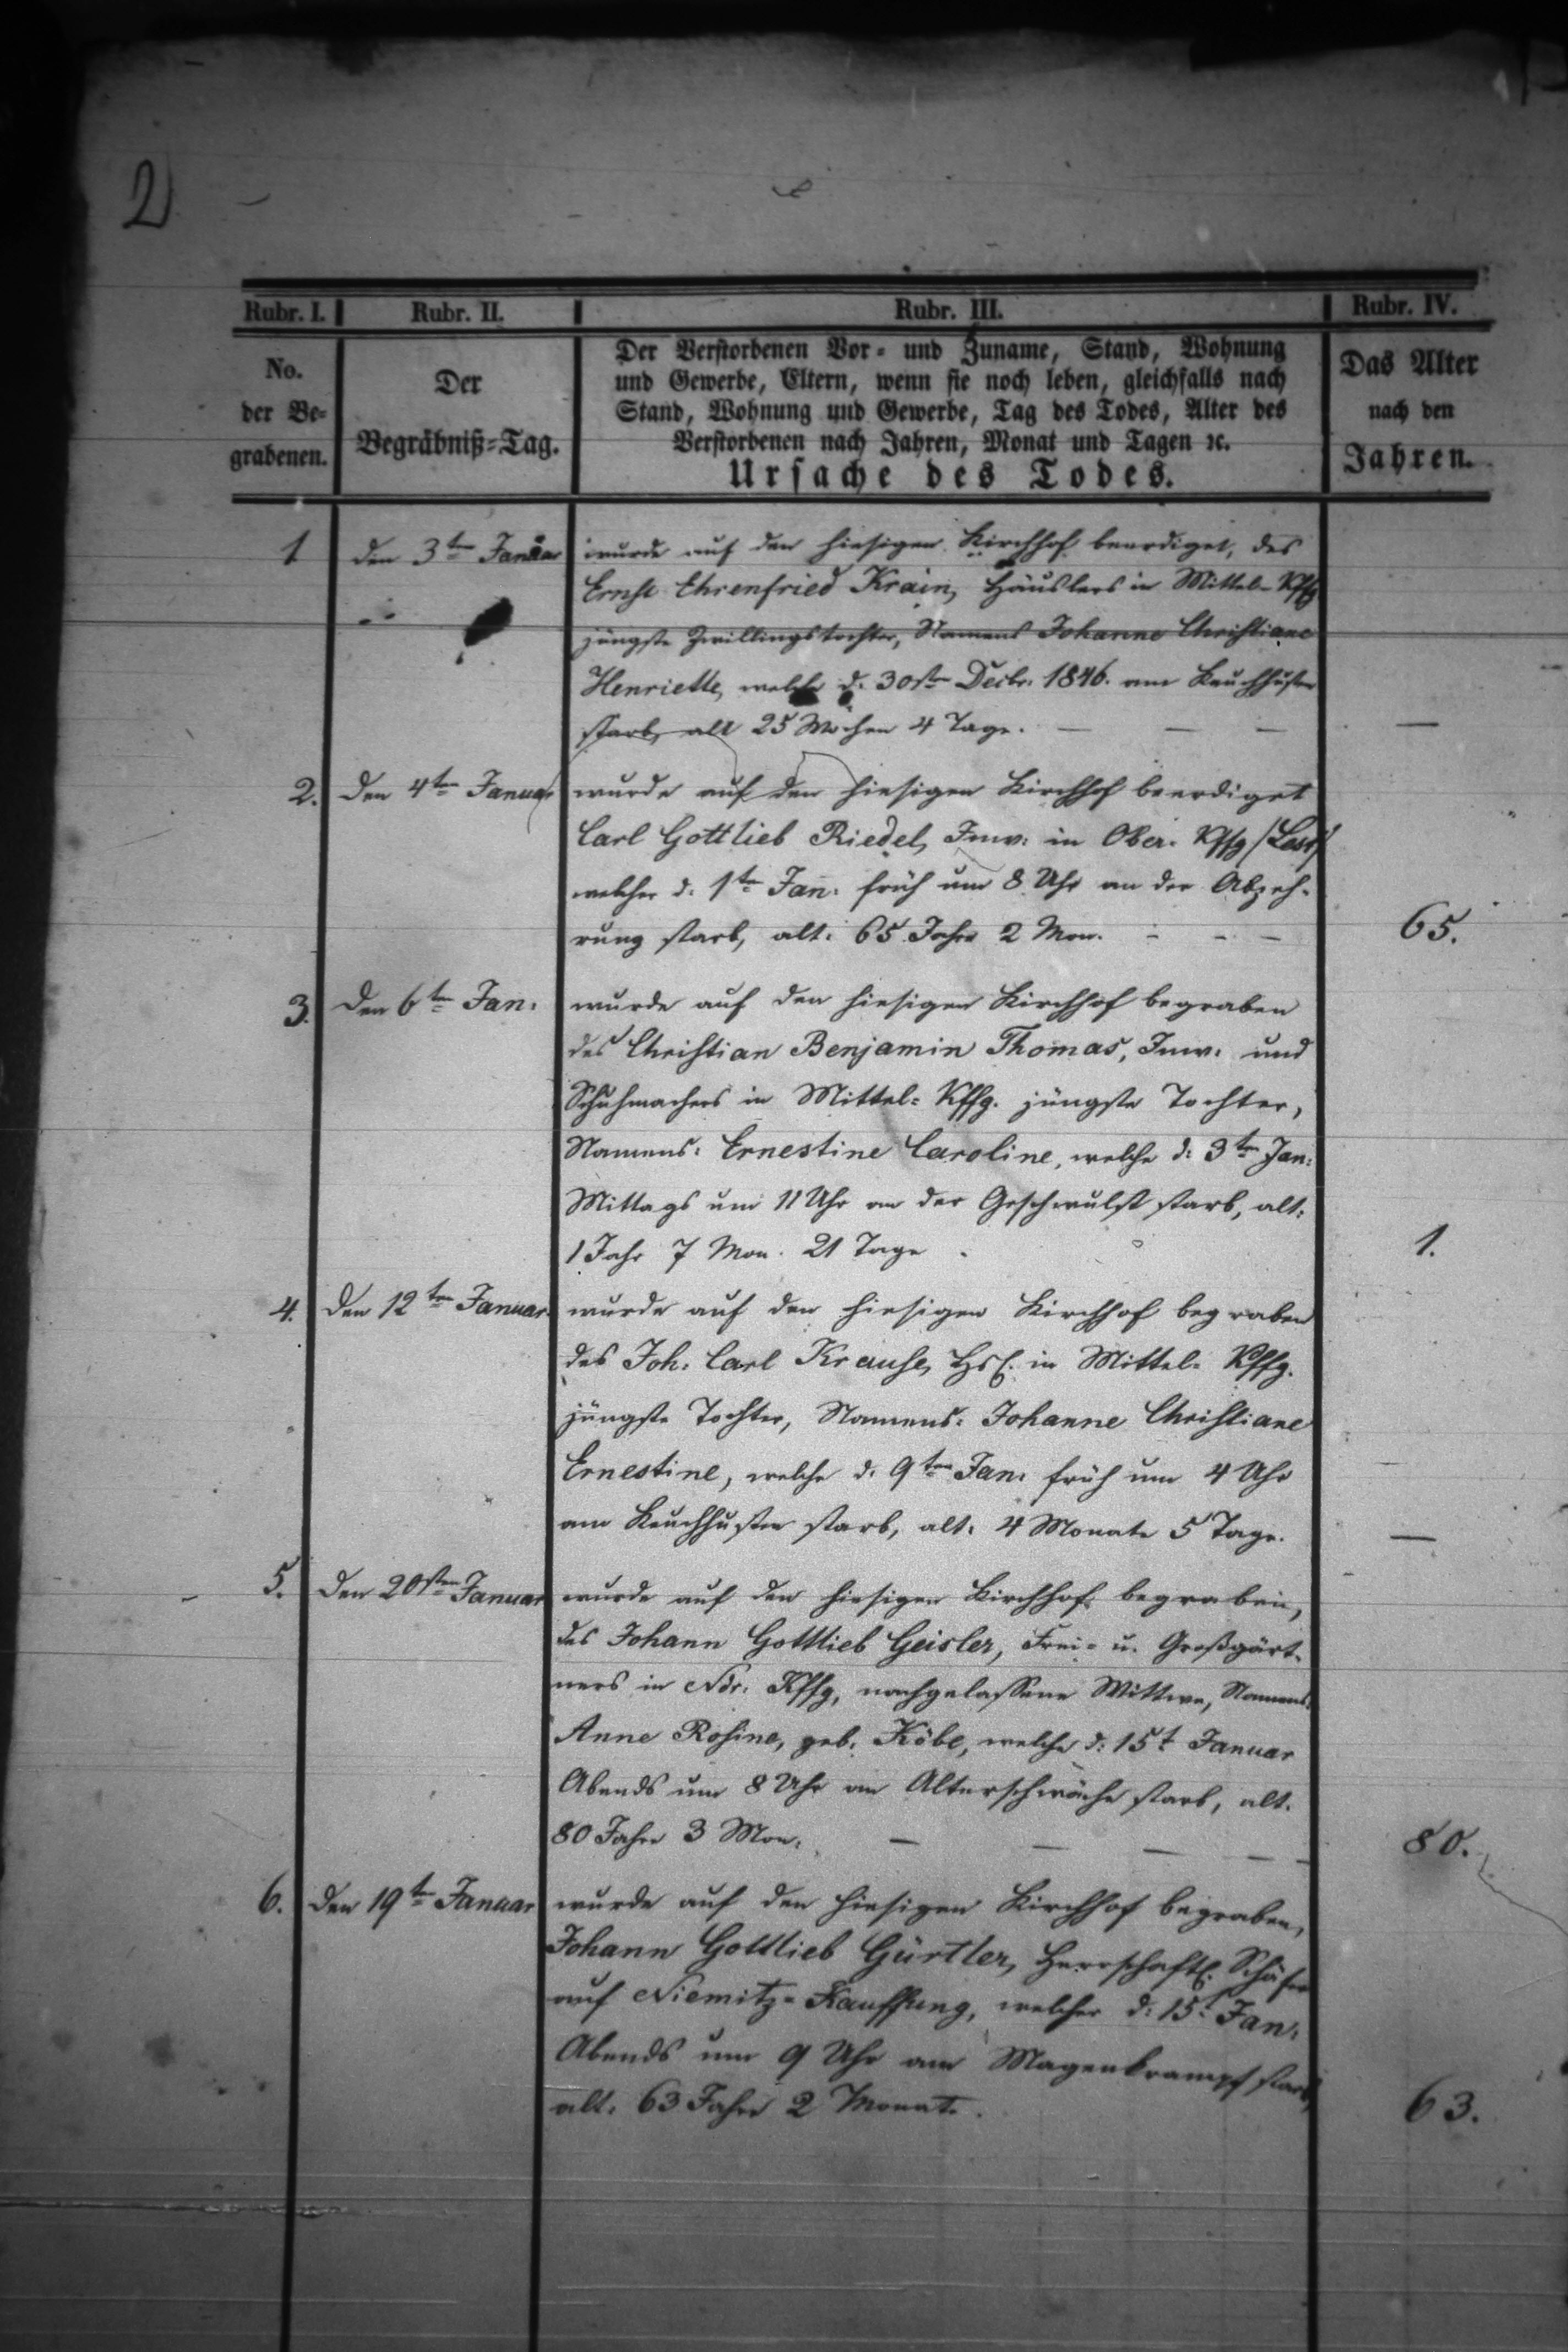 2
Rubr. I. Rubr. II. Rubr. III. Rubr. IV.
No.
der Be-
grabenen.
Der
Begräbniß-Tag.
Der Verstorbenen Vor- und Zuname, Stand, Wohnung
und Gewerbe, Eltern, wenn sie noch leben, gleichfalls nach
Stand, Wohnung und Gewerbe, Tag des Todes, Alter des
Verstorbenen nach Jahren, Monat und Tagen ꝛc.
Ursache des Todes.
Das Alter
nach den
Jahren.
1 den 3ten Januar wurde auf den hiesigen Kirchhof beerdiget, des
Ernst Ehrenfried Krain, Häuslers in Mittel-Kffg
jüngste Zwillingstochter, Namens Johanne Christiane
Henriette, welche d. 30sten Decbr. 1846. am Keuchhusten
starb, alt 25 Wochen 4 Tage. — — — —
2. den 4ten Januar wurde auf den hiesigen Kirchhof beerdiget
Carl Gottlieb Riedel, Inw. in Ober-Kffg
welcher d. 1ten Jan. früh um 8 Uhr an der Abzeh-
rung starb, alt: 65 Jahre 2 Mon. - - - 65.
3. den 6ten Jan: wurde auf den hiesigen Kirchhof begraben
des Christian Benjamin Thomas, Inw. und
Schuhmachers in Mittel-Kffg. jüngste Tochter,
Namens: Ernestine Caroline, welche d: 3ten Jan:
Mittags um 11 Uhr an der Geschwulst starb, alt:
1 Jahr 7 Mon. 21 Tage 1.
4. den 12ten Januar. wurde auf den hiesigen Kirchhof begraben
des Joh. Carl Krause, Hsl. in Mittel-Kffg.
jüngste Tochter, Namens: Johanne Christiane
Ernestine, welche d. 9ten Jan. früh um 4 Uhr
am Keuchhusten starb, alt: 4 Monate 5 Tage. —
5. den 20sten Januar wurde auf den hiesigen Kirchhof begraben,
des Johann Gottlieb Geisler, Frei- u. Großgärt-
ners in Ndr. Kffg, nachgelassene Wittwe, Namens:
Anne Rosine, geb. Köbe, welche d: 15t Januar
Abends um 8 Uhr an Alterschwäche starb, alt.
80 Jahre 3 Mon. — — — — 80.
6. den 19ten Januar wurde auf den hiesigen Kirchhof begraben,
Johann Gottlieb Gürtler, herrschaftl. Schäfer
auf Niemitz-Kauffung, welcher d: 15t Jan.
Abends um 9 Uhr am Magenkrampf starb,
alt. 63 Jahre 2 Monat. 63.